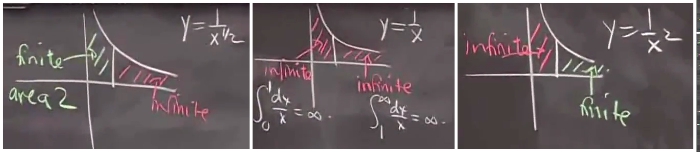 y = 1/x^{1/2}
finite
area 2
infinite
y = 1/x
infinite
infinite
∫_0^1 dx/x = ∞.
∫_1^∞ dx/x = ∞.
y = 1/x^2
infinite
finite